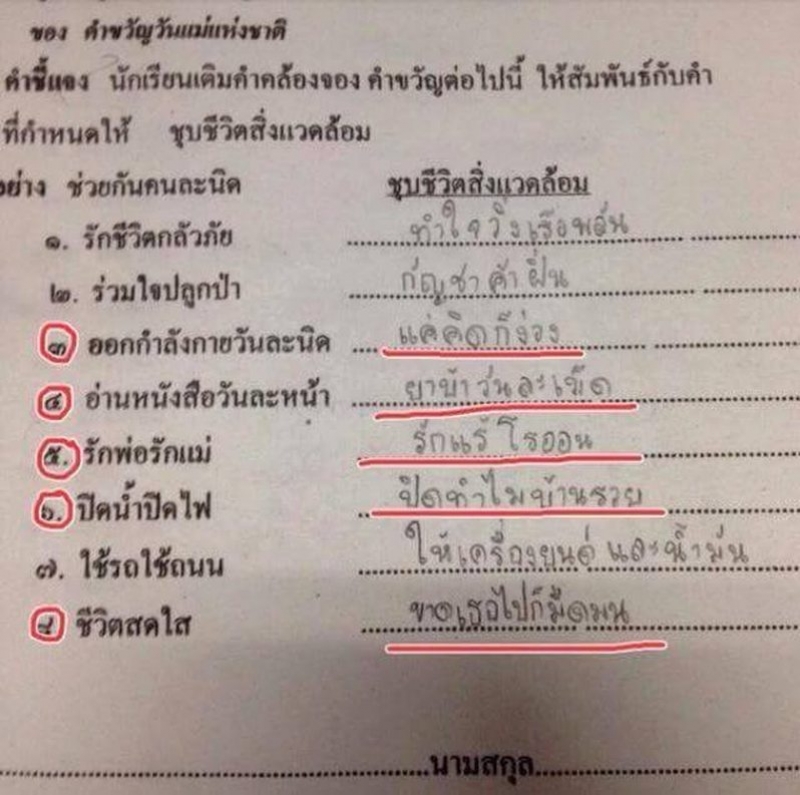 ของ คำขวัญวันแม่แห่งชาติ
คำชี้แจง นักเรียนเติมคำคล้องจอง คำขวัญต่อไปนี้ ให้สัมพันธ์กับคำ
ที่กำหนดให้ ชุบชีวิตสิ่งแวดล้อม
อย่าง ช่วยกันคนละนิด ชุบชีวิตสิ่งแวดล้อม
๑. รักชีวิตกลัวภัย ทำใจวิ่งเรือพลัน
๒. ร่วมใจปลูกป่า กัญชาค้าฝิ่น
๓ ออกกำลังกายวันละนิด แค่คิดก็ง่วง
๔ อ่านหนังสือวันละหน้า ยาบ้าวันละเม็ด
๕. รักพ่อรักแม่ รักแร้โรออน
๖. ปิดน้ำปิดไฟ ปิดทำไมบ้านรวย
๗. ใช้รถใช้ถนน ให้เครื่องยนต์และน้ำมัน
๘ ชีวิตสดใส ขาดเธอไปก็มืดมน
นามสกุล